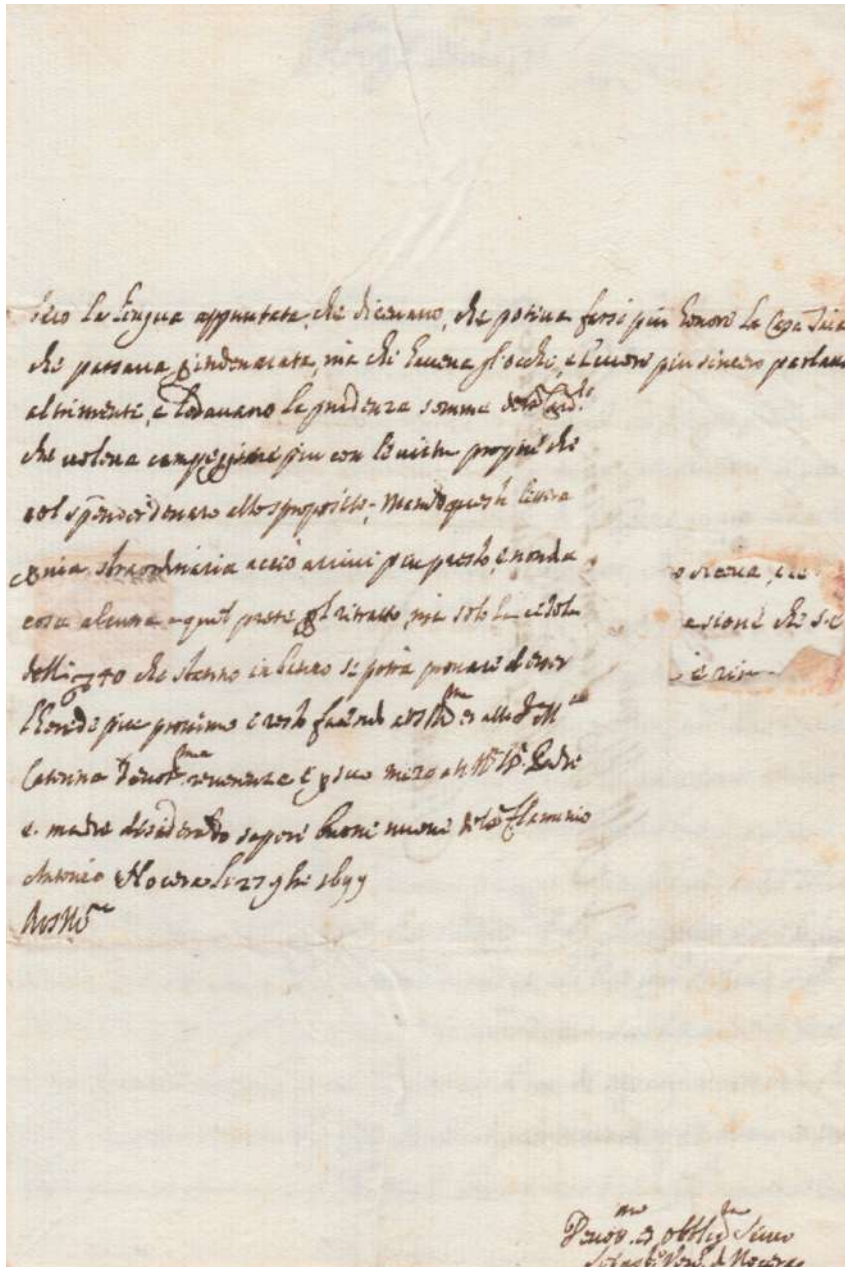 la lingua appuntata, che diceuano, che poteua farsi piu honore la Casa
che passaua indemaiata, ma chi haueua gl'occhi, e l'cuore piu sincero parlaua
altrimente, e lodauano la prudenza somma del
che uoleua campeggiare piu con le uirtu proprie che
col spender denaro allo sproposito; Mando questa lettera
straordinaria acciò arriui piu presto, e non da
cosa alcuna a quel prete ritratto, ma solo la cedola
delli 40 che stanno in se potrà prouare d'esser
l'herede piu prossimo e resto facendo a et alla
Caterina reuerenza e suo mezo Padre
e madre desiderando sapere buone nuoue del Flaminio
Antonio Nocera li 27 9bre 1699
o diceua, che
asione che si è
e rin
Deuot.mo et obblig.mo
Vesc. di Nocera